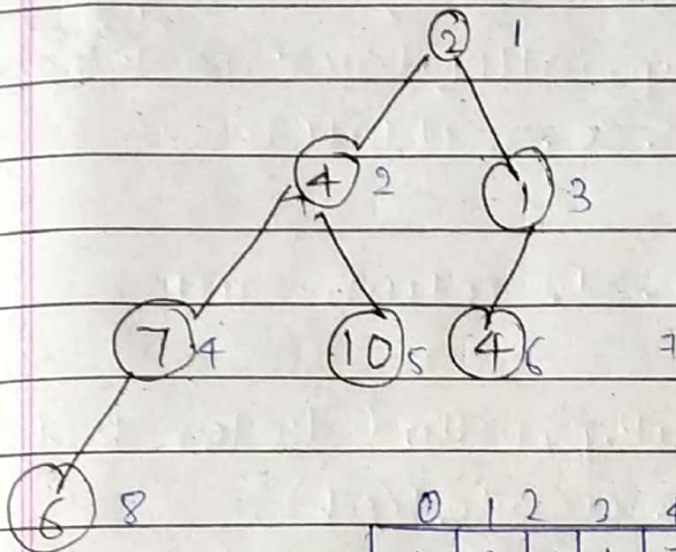 2 1
4 2 1 3
7 4 10 5 4 6 7
6 8
0 1 2 3 4